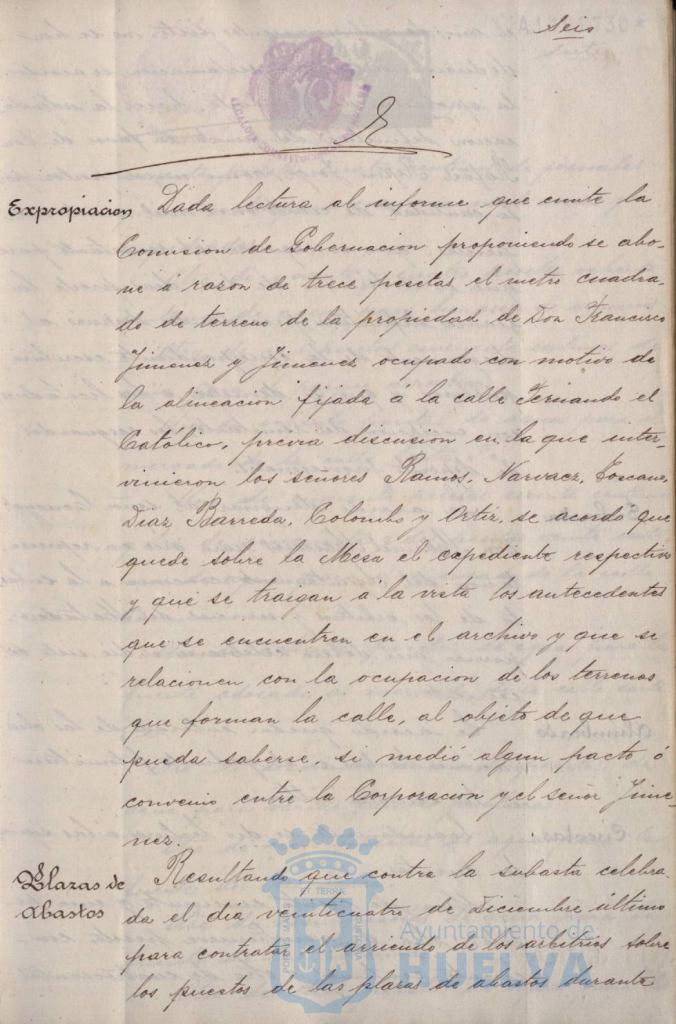 Seis
Expropiacion
Dada lectura al informe que emite la
Comision de Gobernacion proponiendo se abo-
ne á razon de trece pesetas el metro cuadra-
do de terreno de la propiedad de Don Francisco
Jimenez y Jimenez ocupado con motivo de
la alineacion fijada á la calle Fernando el
Católico, previa discusion en la que inter-
vinieron los señores Ramos, Narvaez, Toscano,
Diaz Barreda, Colombo y Ortiz, se acordó que
quede sobre la Mesa el expediente respectivo
y que se traigan á la vista los antecedentes
que se encuentren en el archivo y que se
relacionen con la ocupacion de los terrenos
que forman la calle, al objeto de que
pueda saberse, si medió algun pacto ó
convenio entre la Corporacion y el señor Jime-
nez.
Plazas de
Abastos
Resultando que contra la subasta celebra-
da el día veinticuatro de Diciembre último
para contratar el arriendo de los arbitrios sobre
los puestos de las plazas de abastos durante
Ayuntamiento de
HUELVA